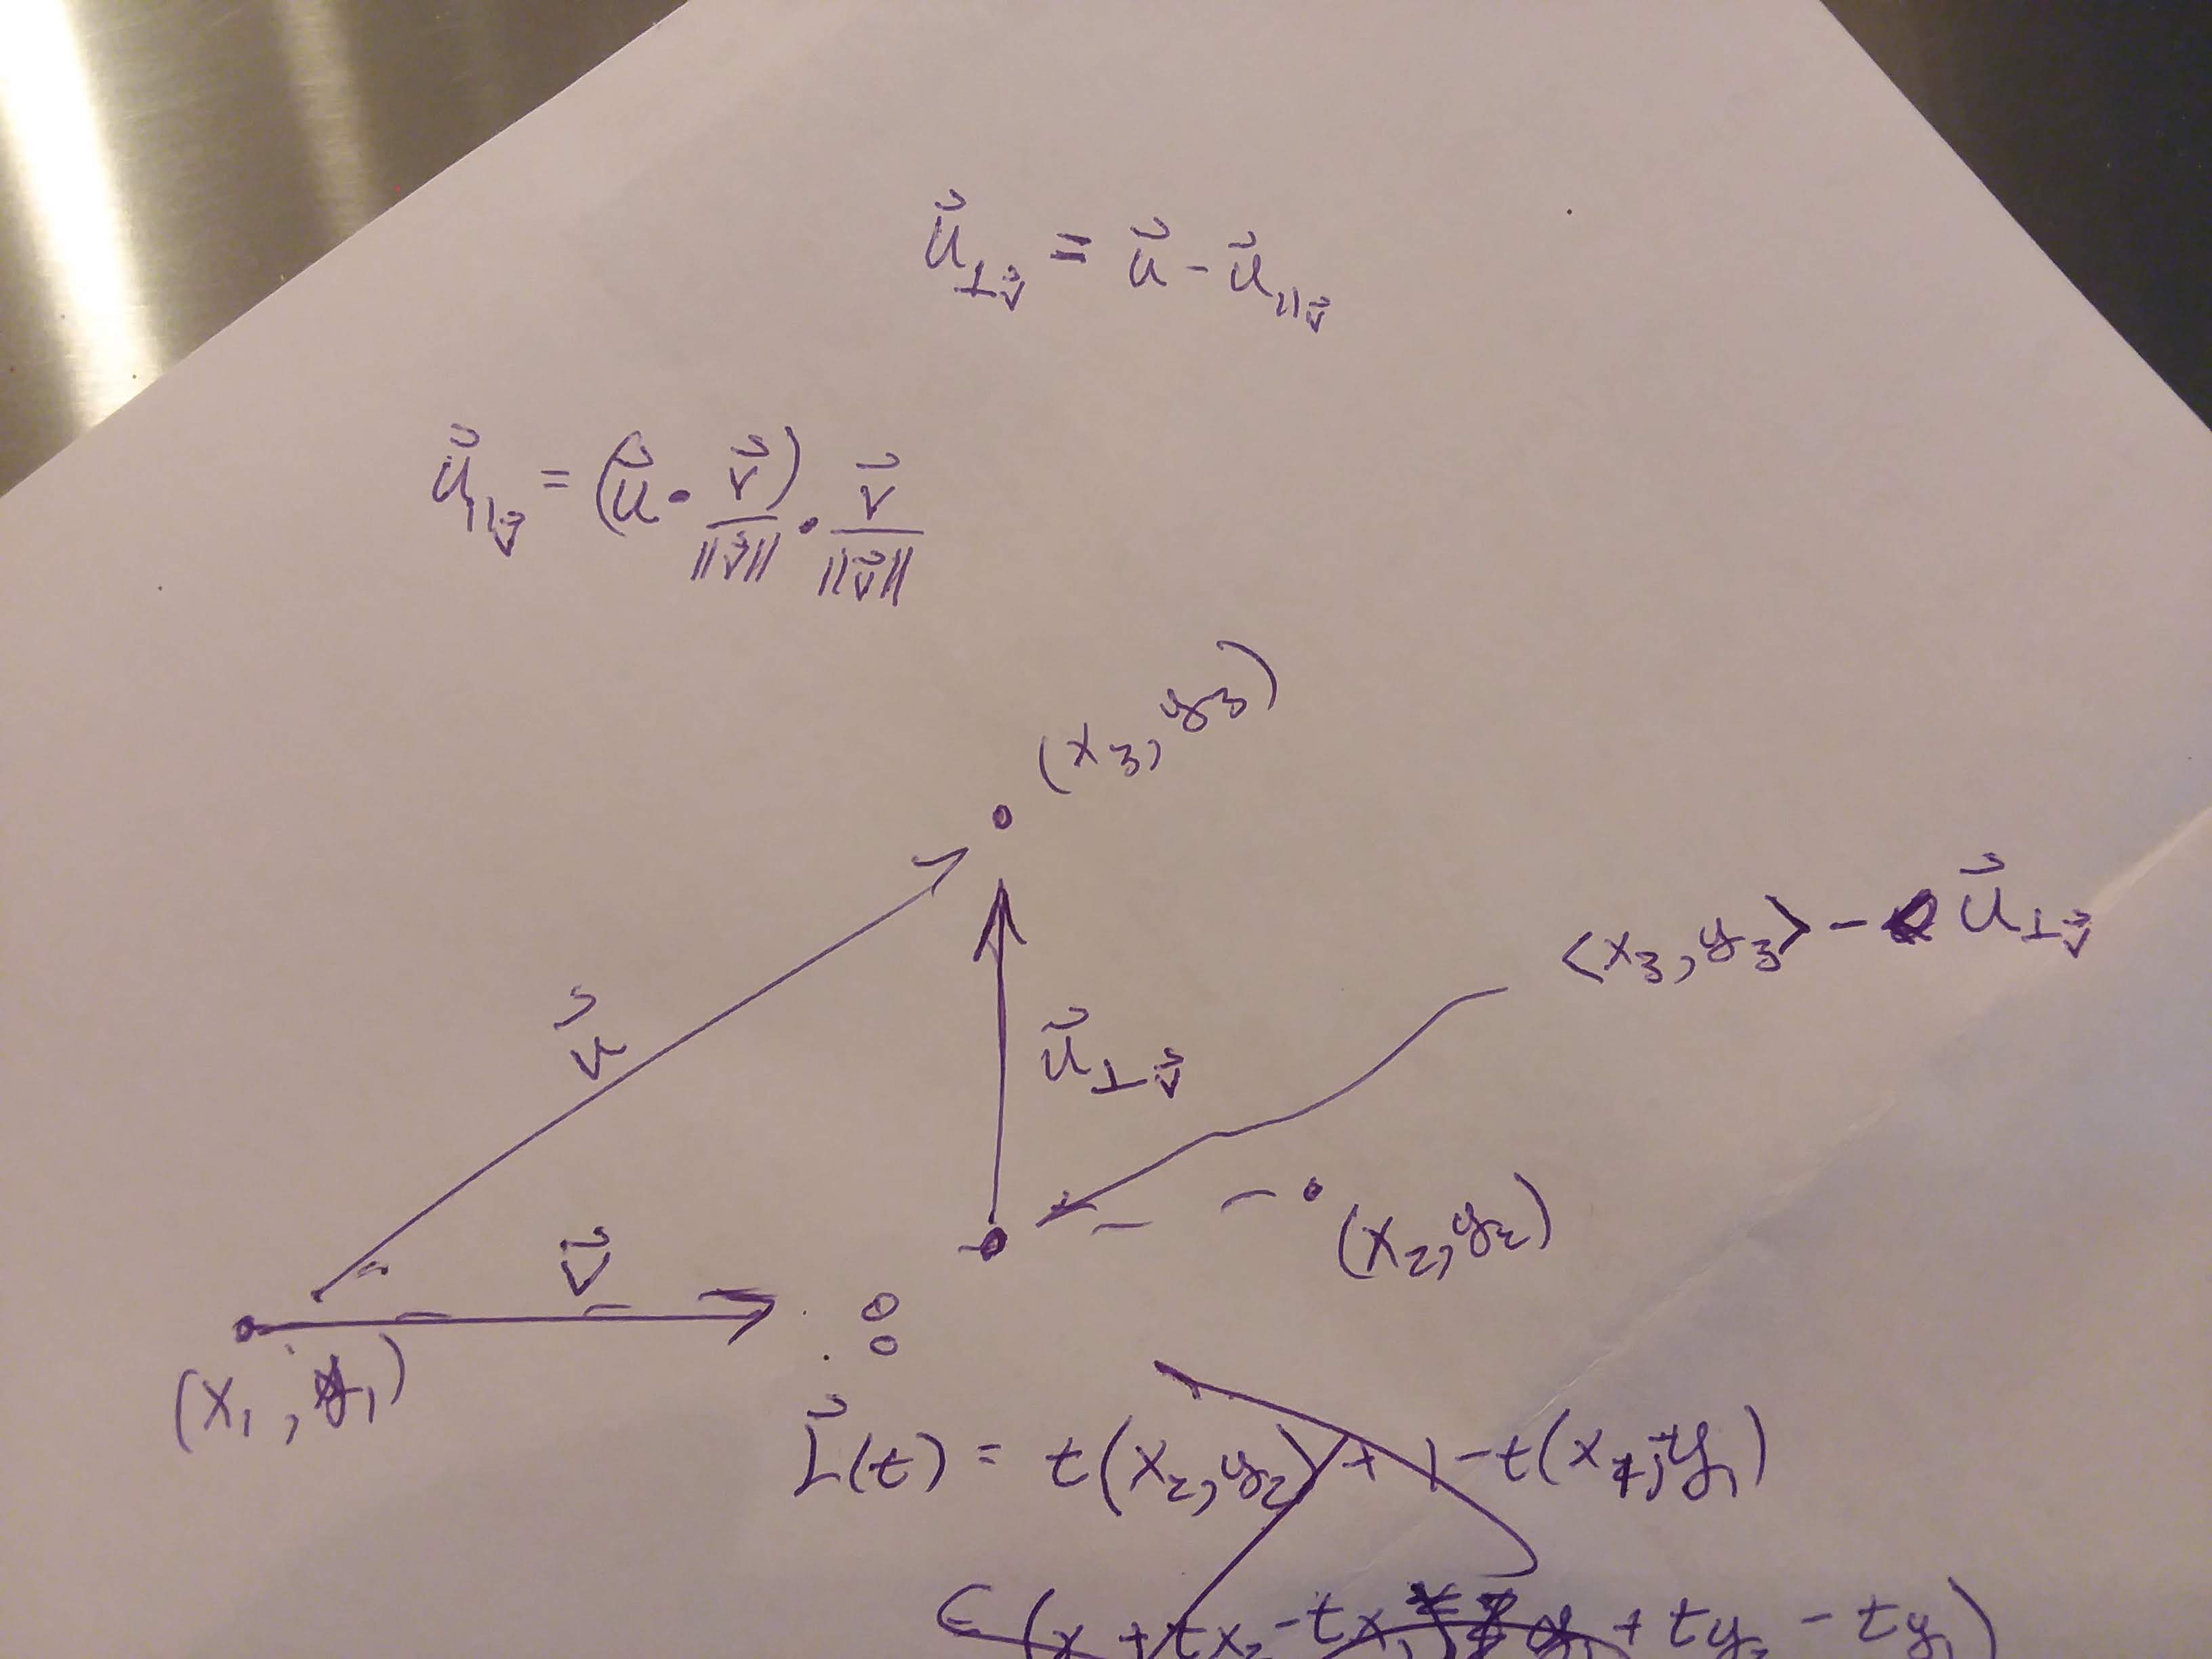 u⃗⊥v⃗ = u⃗ - u⃗||v⃗
u⃗||v⃗ = (u⃗ · v⃗/||v⃗||) · v⃗/||v⃗||
(x₃, y₃)
<x₃, y₃> - u⃗⊥v⃗
u⃗
u⃗⊥v⃗
(x₂, y₂)
v⃗
(x₁, y₁)
L⃗(t) = t(x₂, y₂) + 1-t(x₁, y₁)
+ tx₂ - tx₁ y₁ + ty₂ - ty₁)